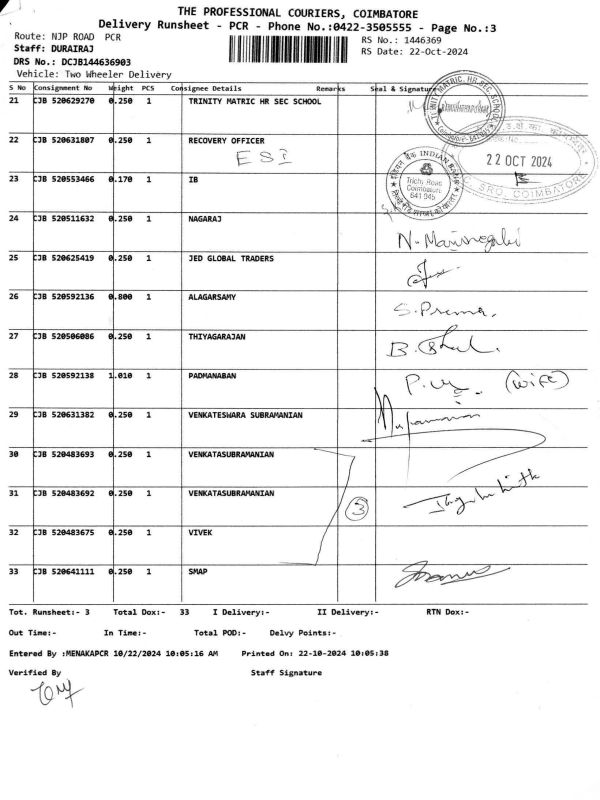 THE PROFESSIONAL COURIERS, COIMBATORE
Delivery Runsheet - PCR - Phone No.:0422-3505555 - Page No.:3
Route: NJP ROAD PCR
RS No.: 1446369
Staff: DURAIRAJ
RS Date: 22-Oct-2024
DRS No.: DCJB144636903
Vehicle: Two Wheeler Delivery
S No Consignment No Weight PCS Consignee Details Remarks Seal & Signature
21 CJB 520629270 0.250 1 TRINITY MATRIC HR SEC SCHOOL
22 CJB 520631807 0.250 1 RECOVERY OFFICER
ESI
22 OCT 2024
SRO, COIMBATORE
23 CJB 520553466 0.170 1 IB
INDIAN BANK
Trichy Road
Coimbatore
641 045
24 CJB 520511632 0.250 1 NAGARAJ
25 CJB 520625419 0.250 1 JED GLOBAL TRADERS
26 CJB 520592136 0.800 1 ALAGARSAMY
S.Prema.
27 CJB 520506086 0.250 1 THIYAGARAJAN
28 CJB 520592138 1.010 1 PADMANABAN
(wife)
29 CJB 520631382 0.250 1 VENKATESWARA SUBRAMANIAN
30 CJB 520483693 0.250 1 VENKATASUBRAMANIAN
31 CJB 520483692 0.250 1 VENKATASUBRAMANIAN
3
32 CJB 520483675 0.250 1 VIVEK
33 CJB 520641111 0.250 1 SMAP
Tot. Runsheet:- 3 Total Dox:- 33 I Delivery:- II Delivery:- RTN Dox:-
Out Time:- In Time:- Total POD:- Delvy Points:-
Entered By :MENAKAPCR 10/22/2024 10:05:16 AM Printed On: 22-10-2024 10:05:38
Verified By Staff Signature